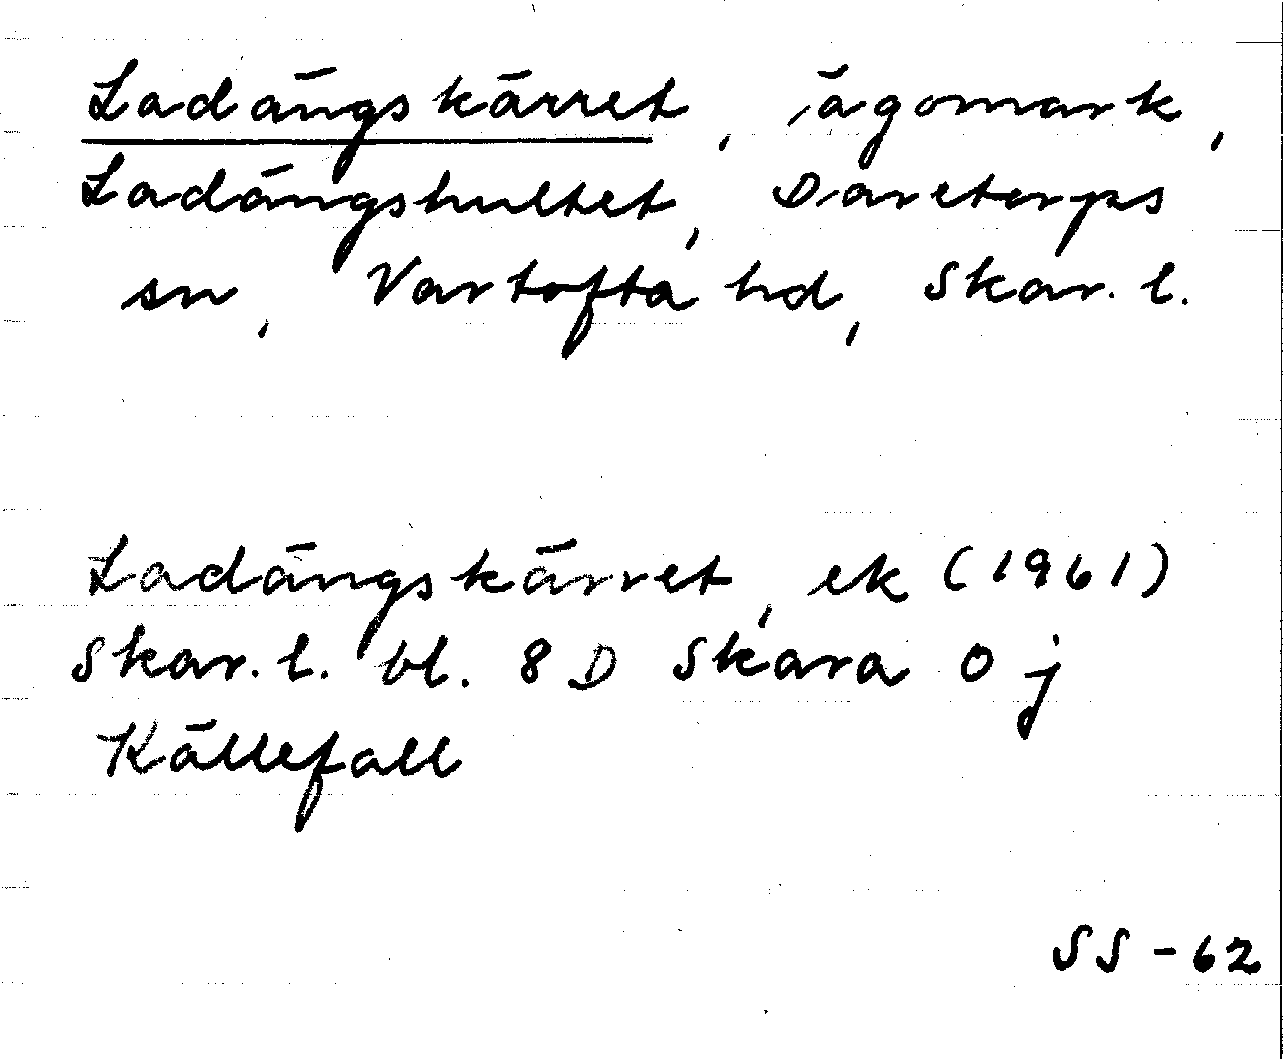 Ladängskärret, ägomark,
Ladängshultet, Daretorps
sn, Vartofta hd, Skar. l.
Ladängskärret, ek (1961)
Skar. l. bl. 8 D Skara 0 j
Källefall
SS - 62